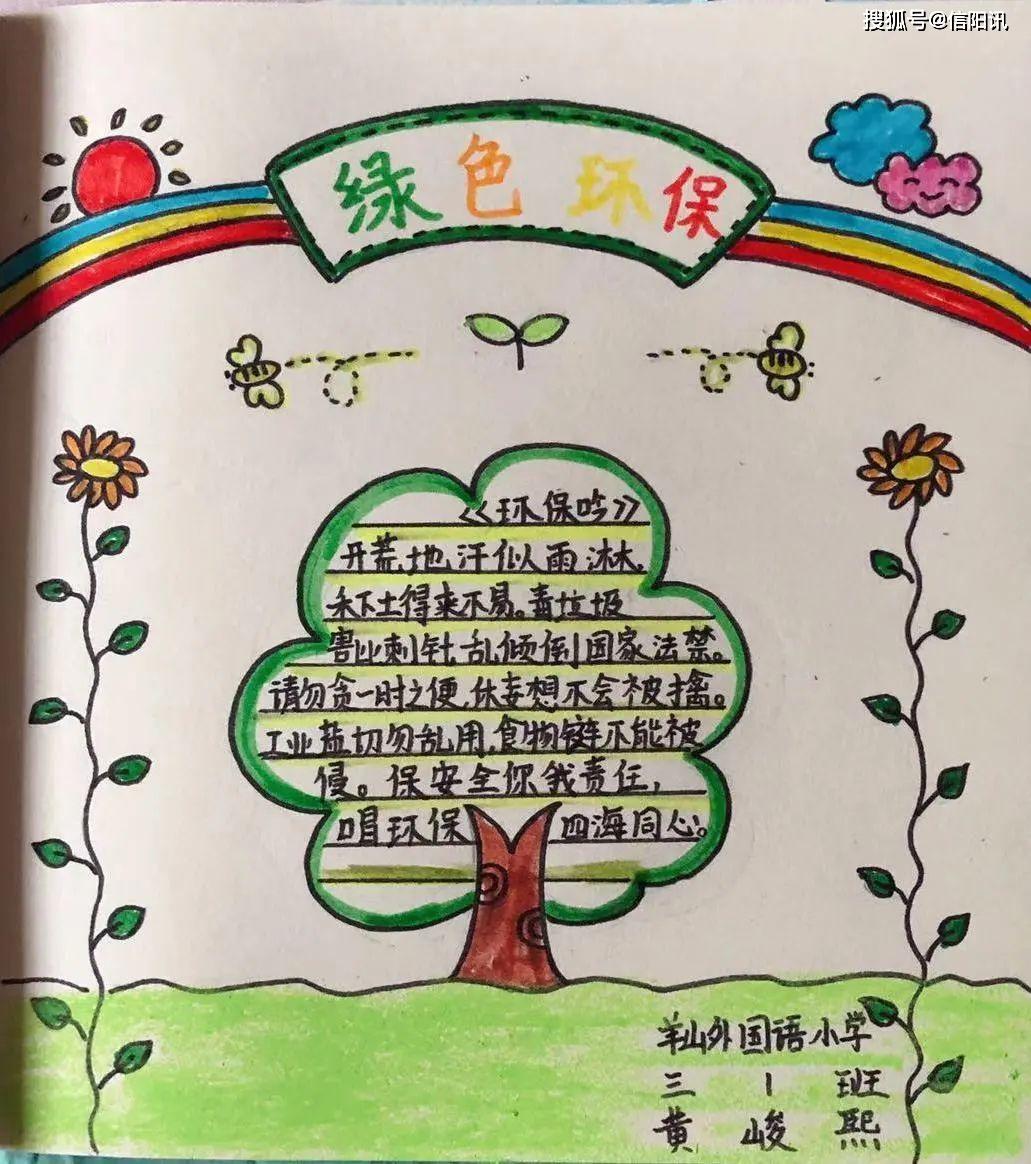 搜狐号@信阳讯
绿色环保
《环保吟》
开荒地,汗似雨淋,
禾下土得来不易。毒垃圾
害业刺针,乱倾倒国家法禁。
请勿贪一时之便,休妄想不会被擒。
工业盐切勿乱用,食物链不能被
侵。保安全你我责任,
唱环保 四海同心。
羊山外国语小学
三 1 班
黄 峻 熙